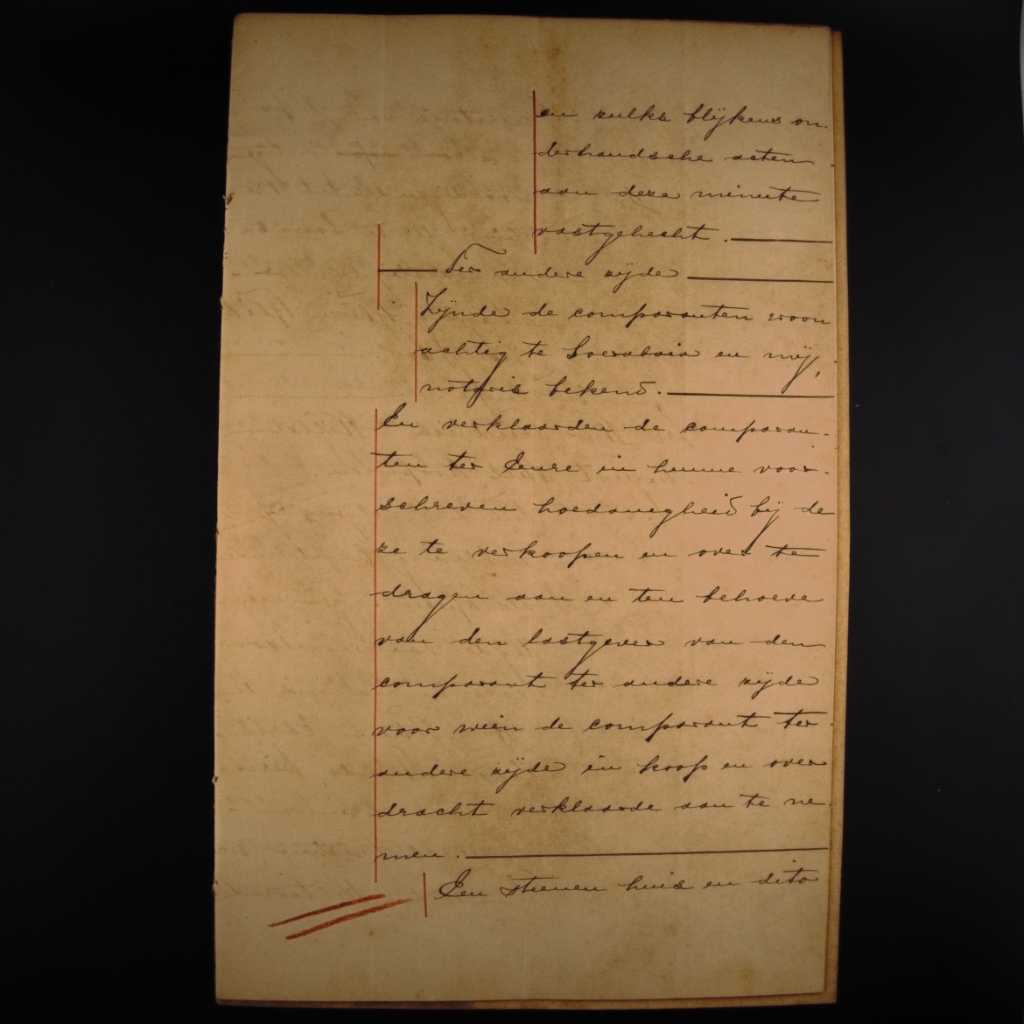 en zulks blijkens on-
derhandsche acten
aan deze minute
vastgehecht.
Ter andere zijde
Zijnde de comparanten woon
achtig te Soerabaia en mij,
notaris bekend.
En verklaarden de comparan-
ten ter eenre in hunne voor-
schreven hoedanigheid bij de
ze te verkoopen en over te
dragen aan en ten behoeve
van den lastgever van den
comparant ter andere zijde
voor wien de comparant ter
andere zijde in koop en over
dracht verklaarde aan te ne-
men.
Een steenen huis en dito